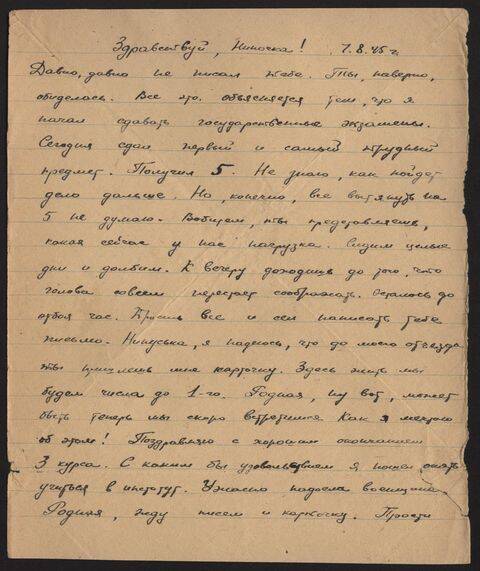 Здравствуй, Ниночка! 7.8.45 г.
Давно, давно не писал тебе. Ты, наверно,
обиделась. Все это объясняется тем, что я
начал сдавать государственные экзамены.
Сегодня сдал первый и самый трудный
предмет. Получил 5. Не знаю, как пойдет
дело дальше. Но, конечно, все вытянуть на
5 не думаю. Вобщем, ты представляешь,
какая сейчас у нас нагрузка. Сидим целые
дни и долбим. К вечеру доходишь до того, что
голова совсем перестает соображать. Осталось до
отбоя час. Бросил все и сел написать тебе
письмо. Нинуська, я надеюсь, что до моего отъезда
ты пришлешь мне карточку. Здесь жить мы
будем числа до 1-го. Родная, ну вот, может
быть теперь мы скоро встретимся Как я мечтаю
об этом! Поздравляю с хорошим окончанием
3 курса. С каким бы удовольствием я пошел опять
учиться в институт. Ужасно надоела военщина.
Родная, жду писем и карточку. Прости